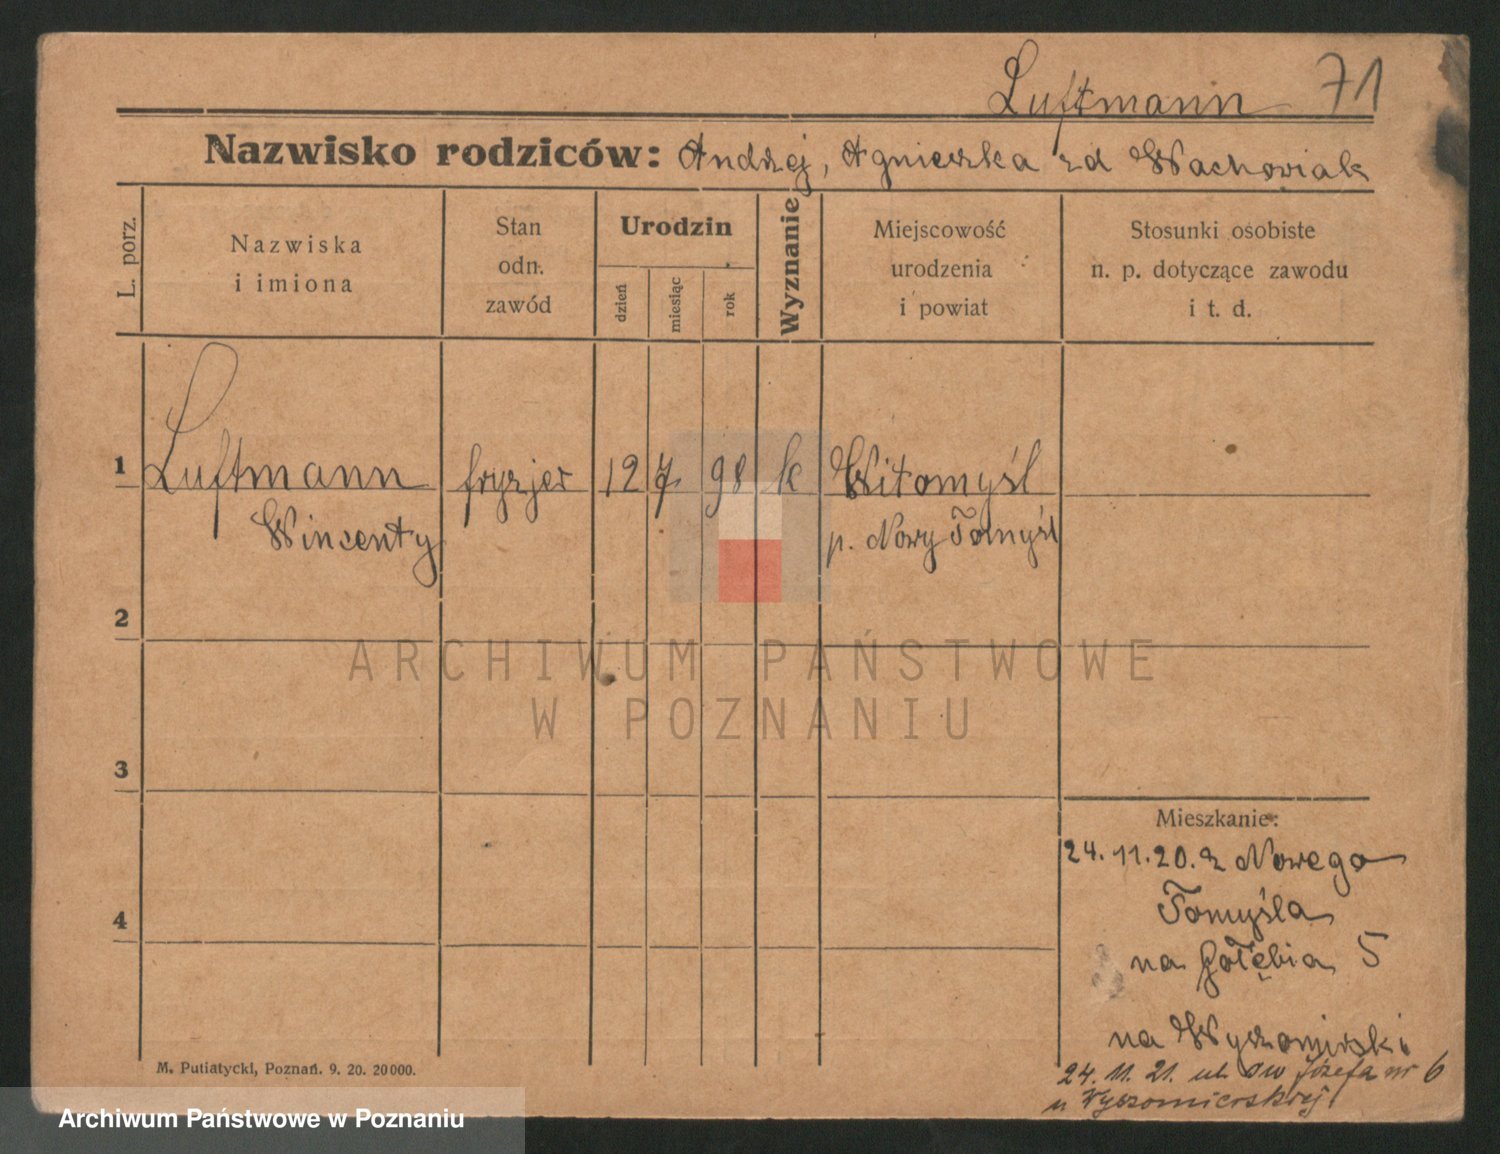 Luftmann 71
Nazwisko rodziców: Andrzej, Agnieszka zd Wachowiak
L. porz.
Nazwiska
i imiona
Stan
odn.
zawód
Urodzin
dzień
miesiąc
rok
Wyznanie
Miejscowość
urodzenia
i powiat
Stosunki osobiste
n. p. dotyczące zawodu
i t. d.
1 Luftmann fryzjer 12 7 98 k Witomyśl
Wincenty p. Nowy Tomyśl
2
ARCHIWUM PAŃSTWOWE
W POZNANIU
3
Mieszkanie:
24.11.20. z Nowego
Tomyśla
4
na Gołębia 5
na Wyszomirski
24. 11. 21. ul. św Józefa nr 6
u Wyszomierskiej
M. Putiatycki, Poznań. 9. 20. 20000.
Archiwum Państwowe w Poznaniu